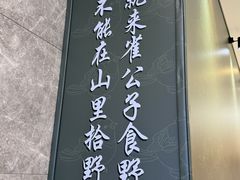 不能在山里拾野
就来崔公子食野